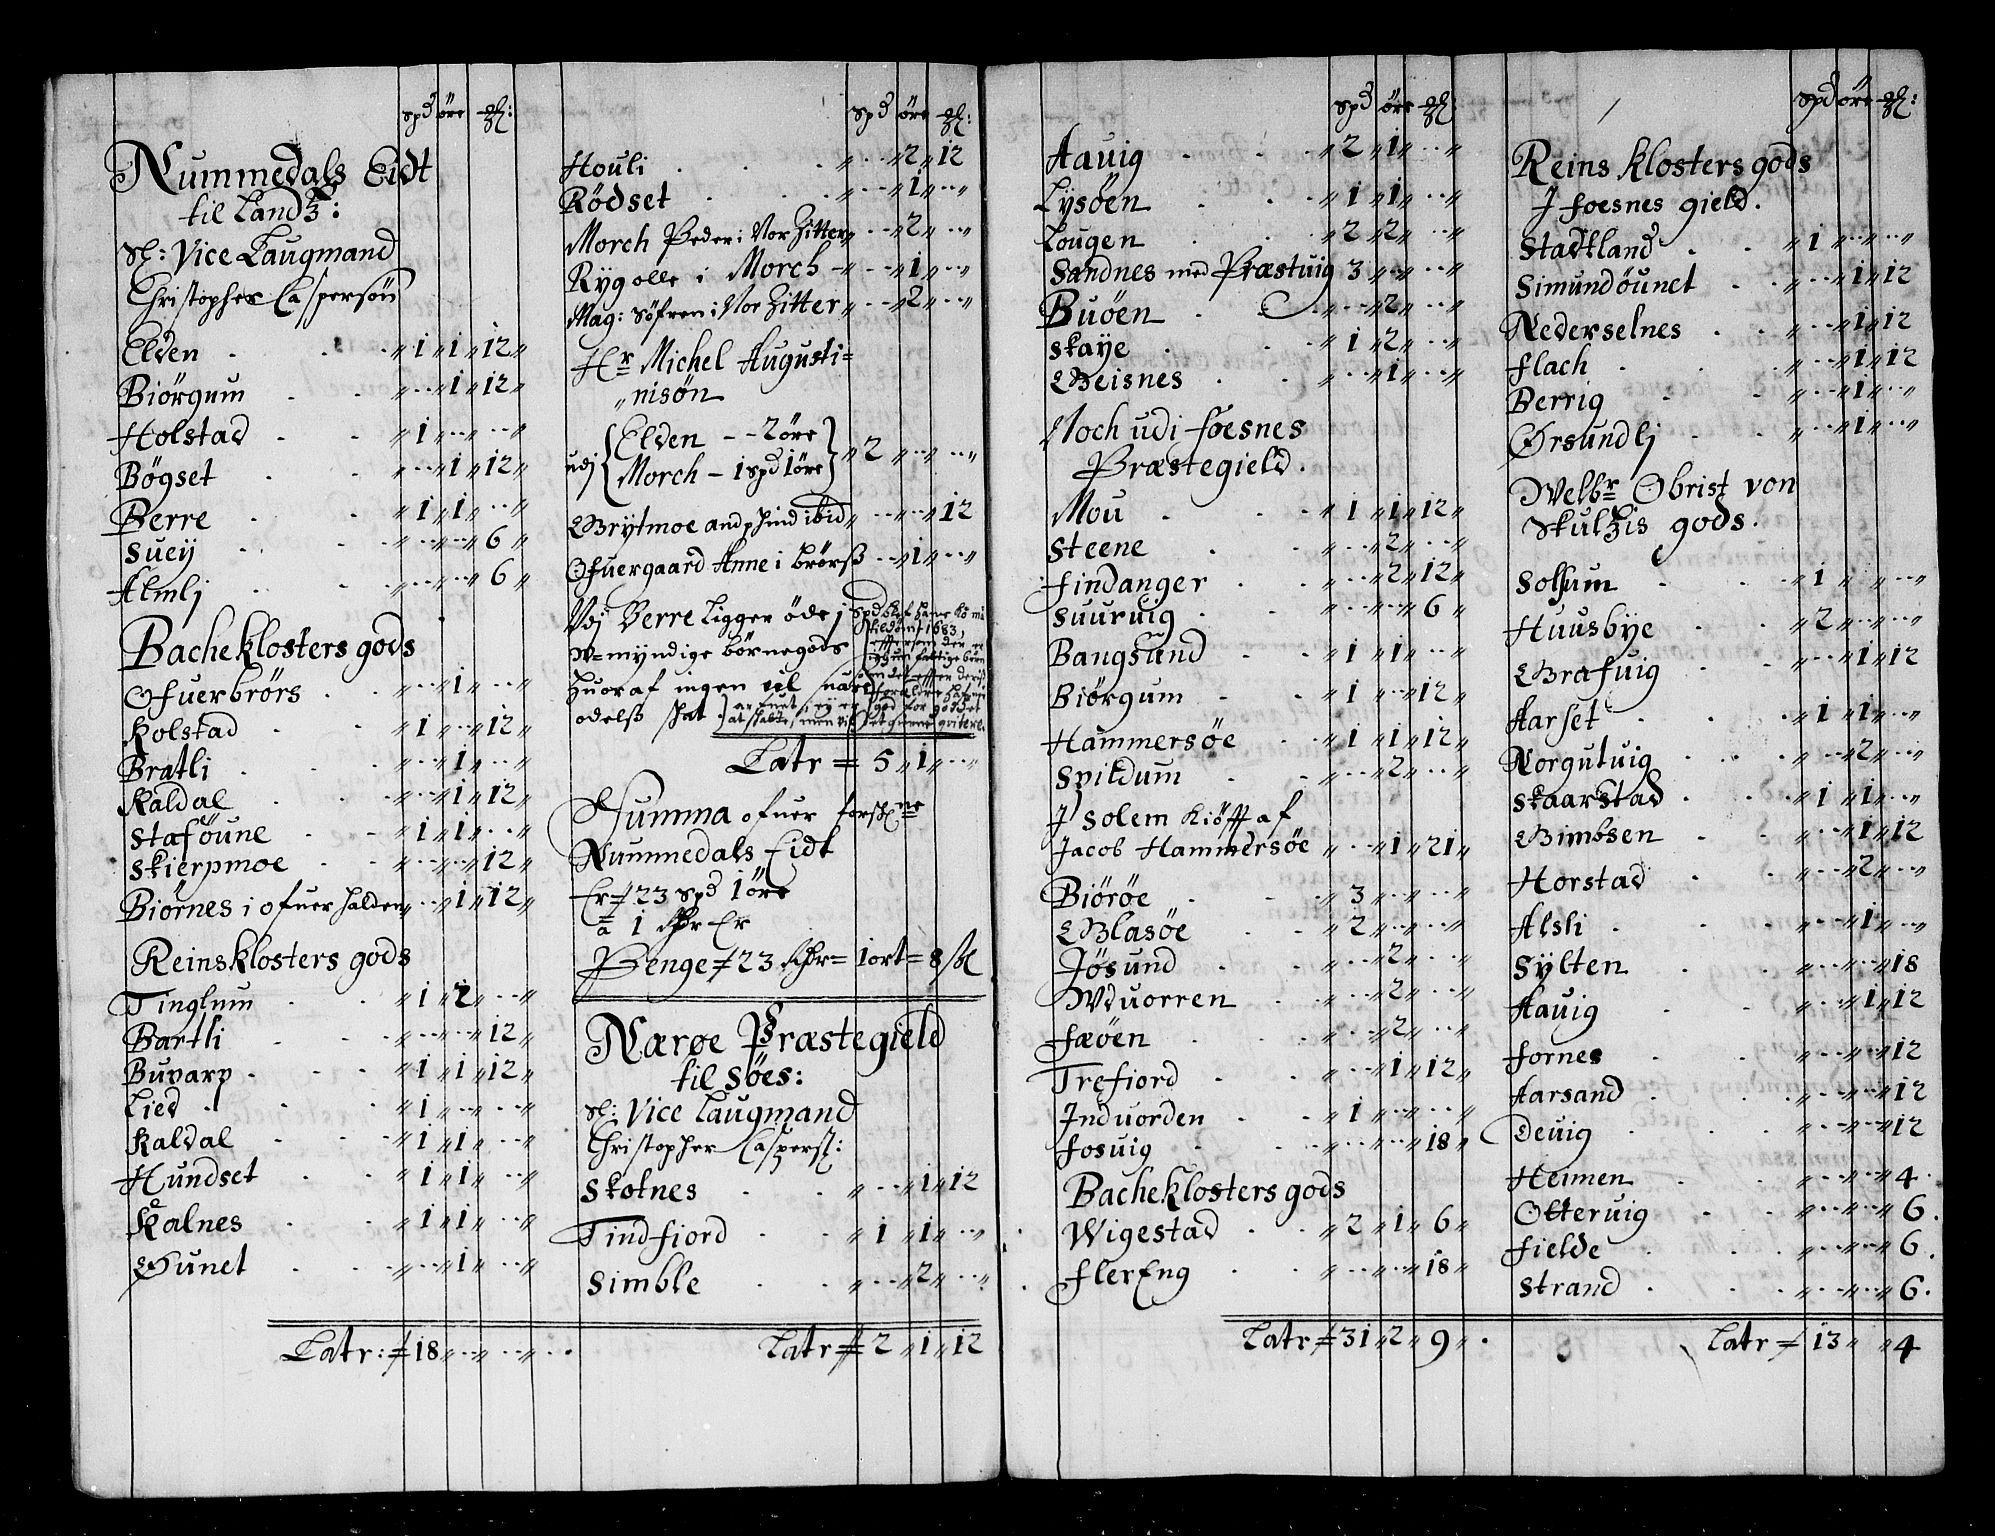 Spd öre
Nummedals Eidt
til Landz:
Sl: Vice Laugmand
Christopher Caspersøn
Elden . . . „ 1 „ 1 „ 12 „
Biörgum . . „ .. „ 1 „ 12 „
Holstad . . „ 1 „ .. „ .. „
Bögset . . „ .. „ 1 „ 12 „
Berre . . „ 1 „ 1 „ .. „
Suey . . „ .. „ .. „ 6 „
Almlj . . „ .. „ .. „ 6 „
Bacheklosters gods
Ofuerbrörs . . „ .. „ 1 „ .. „
Kolstad . . „ 1 „ .. „ 12 „
Bratli . . „ .. „ 1 „ .. „
Kaldal . . „ .. „ 1 „ 12 „
Staföune . . „ 1 „ 1 „ .. „
Skierpmoe . . „ .. „ .. „ 12 „
Biörnes i ofuer halden „ .. „ 1 „ 12 „
Reinsklosters gods
Tinglum . . „ 1 „ 2 „ .. „
Bartli . . „ .. „ .. „ 12 „
Buvarp . . „ 1 „ 1 „ 12 „
Lied . . „ 1 „ .. „ .. „
Kaldal . . „ 1 „ 1 „ .. „
Hundset . . „ 1 „ 1 „ .. „
Kalnes . . „ 1 „ 1 „ .. „
Gunet . . „ .. „ 1 „ .. „
Latr: 18 „ .. „ .. „
Spd öre
Houli . . „ .. „ 2 „ 12
Rödset . . „ .. „ 1 „ .. „
Morch Peder i Vor Zitter „ .. „ 2 „ .. „
Rygolle i Morch „ .. „ 1 „ .. „
Mag: Söfren i Vor Zitter „ .. „ 2 „ .. „
Hr Michel Augusti=
„nisön
udj { Elden - - 2 öre
Morch - 1 spd 1 öre } „ 2 „ .. „ .. „
Grytmoe ibid „ .. „ .. „ 12
Ofuergaard Anne i brörs „ .. „ 1 „ .. „
Vdj Berre Ligger øde j Spd
V=myndige børnegods
huoraf ingen vil
odels
Latr = 5 „ 1 „ .. „
Summa ofuer
Nummedals Eidt
Er 23 spd 1 öre
a 1 Er
Penge 23 = 1 ort = 8
Nærøe Præstegield
til Söes:
Sl: Vice Laugmand
Christopher Caspers:
Skotnes . . „ .. „ 1 „ 12
Tindfiord . . „ 1 „ 1 „ .. „
Simble . . „ .. „ 2 „ .. „
Latr 2 „ 1 „ 12
Spd öre
Aauig . . „ 2 „ 1 „ .. „
Lysöen . . „ 1 „ 1 „ .. „
Lougen . . „ 2 „ 2 „ .. „
Sandnes med Præstuig 3 „ .. „ .. „
Buöen . . „ .. „ 2 „ .. „
Skaye . . „ 1 „ 2 „ .. „
Geisnes . . „ .. „ 1 „ .. „
Noch udi Foesnes
Præstegield.
Mou . . „ 1 „ 1 „ 12 „
Steene . . „ .. „ 2 „ .. „
Findanger . . „ .. „ 2 „ 12 „
Suuruig . . „ .. „ .. „ 6 „
Bangsund . . „ 1 „ 1 „ .. „
Biörgum . . „ 1 „ .. „ 12 „
Hammersöe . . „ 1 „ 1 „ 12 „
Spildum . . „ .. „ 2 „ .. „
J Solem Kiöfft af
Jacob Hammersöe „ .. „ 1 „ 21 „
Biöröe . . „ 3 „ .. „ .. „
Blasöe . . „ 2 „ .. „ .. „
Jösund . . „ .. „ 2 „ .. „
Wduorren . . „ .. „ 2 „ .. „
Fæöen . . „ .. „ 2 „ .. „
Trefiord . . „ .. „ 1 „ 12 „
Induorden . . „ 1 „ .. „ .. „
Fosuig . . „ .. „ .. „ 18 „
Bacheklosters gods
Wigestad . . „ 2 „ 1 „ 6 „
FlerEng . . „ .. „ .. „ 18 „
Latr 31 „ 2 „ 9 „
Spd öre
Reins Klosters gods
J Foesnes gield.
Stadtland . . „ 1 „ .. „ .. „
Simundöunet . . „ .. „ 1 „ 12
Nederselnes . . „ .. „ 1 „ 12
Flach . . „ .. „ 1 „ 12
Berrig . . „ .. „ 1 „ .. „
Ørsundlj . . „ .. „ 1 „ .. „
Welbr Obrist von
Skultzis gods.
Solsum . . „ 1 „ .. „ .. „
Huusbye . . „ 2 „ .. „ .. „
Grafuig . . „ .. „ 1 „ 12
Aarset . . „ 1 „ 1 „ .. „
Norgutuig . . „ .. „ 2 „ .. „
Skaarstad . . „ 1 „ 1 „ .. „
Gimbsen . . „ .. „ 1 „ 12
Horstad . . „ .. „ 2 „ .. „
Alsli . . „ .. „ 1 „ .. „
Sylten . . „ .. „ .. „ 18
Aauig . . „ .. „ 1 „ 12
Fornes . . „ .. „ .. „ 12
Aarsand . . „ .. „ .. „ 12
Deuig . . „ .. „ .. „ 12
Heimen . . „ .. „ .. „ 4
Otteruig . . „ .. „ .. „ 6
Fielde . . „ .. „ .. „ 6
Strand . . „ .. „ .. „ 6
Latr 13 „ „ 4